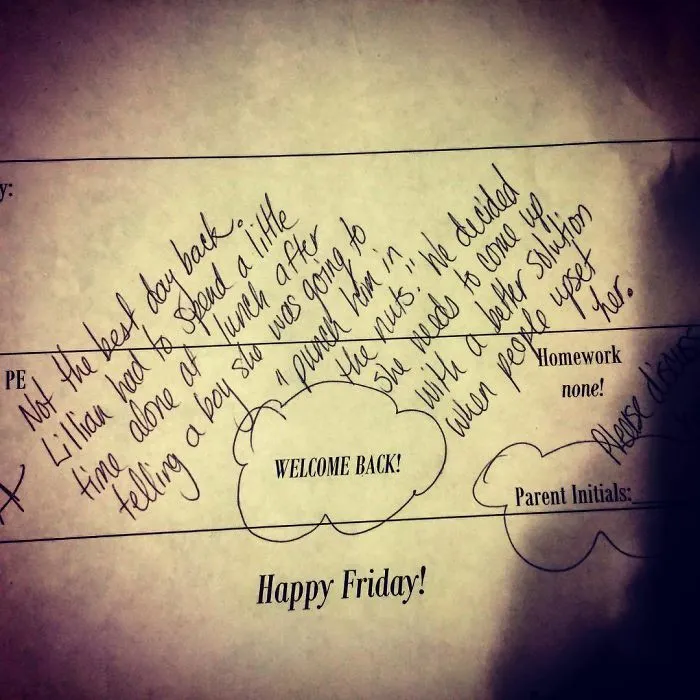 y:
Not the best day back.
Lillian had to spend a little
time alone at lunch after
telling a boy she was going to
"punch him in
the nuts." We decided
she needs to come up
with a better solution
when people upset
her.
PE
Homework
none!
Please discuss
WELCOME BACK!
Parent Initials:
Happy Friday!